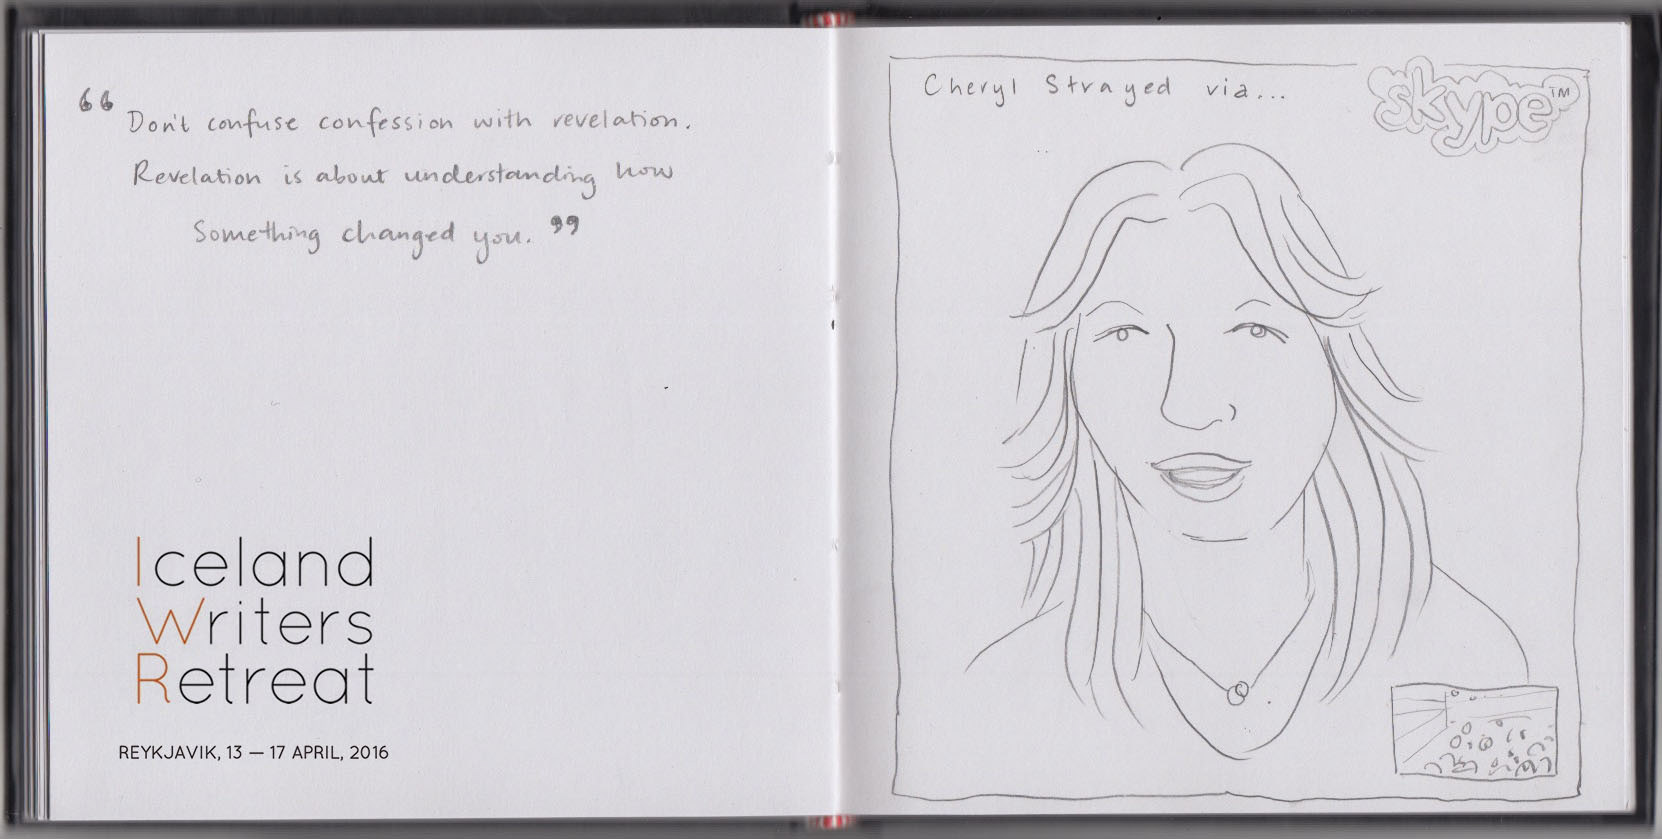 “Don't confuse confession with revelation.
Revelation is about understanding how
Something changed you.”
Iceland
Writers
Retreat
REYKJAVIK, 13 — 17 APRIL, 2016
Cheryl Strayed via...
skype™